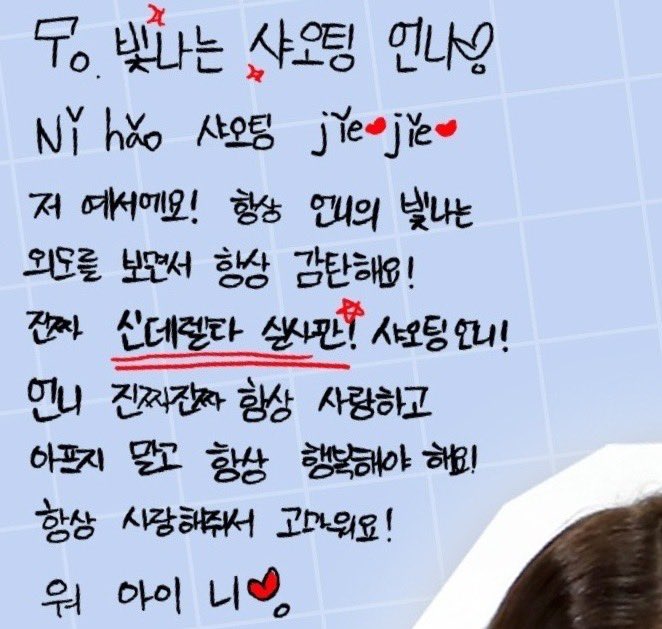 To. 빛나는 샤오팅 언니♡
Nǐ hǎo 샤오팅 jǐe♥jǐe♥
저 예서예요! 항상 언니의 빛나는
외모를 보면서 항상 감탄해요!
진짜 신데렐라 실사판! 샤오팅언니!
언니 진짜진짜 항상 사랑하고
아프지 말고 항상 행복해야 해요!
항상 사랑해줘서 고마워요!
워 아이 니♥